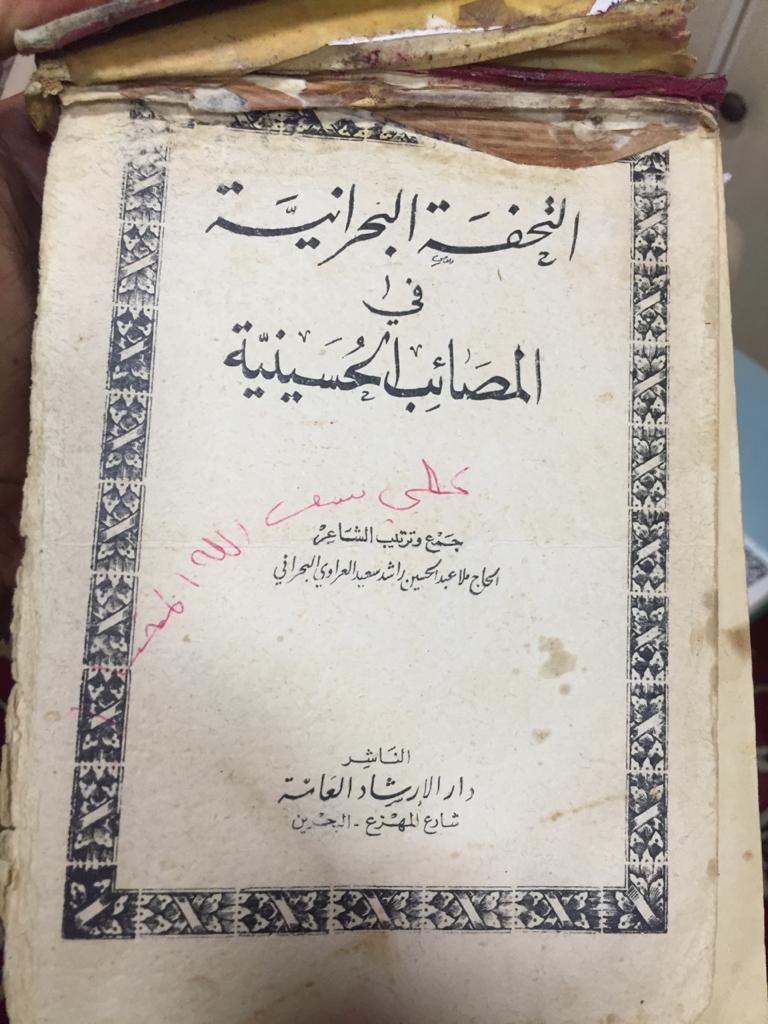 التحفة البحرانية
في
المصائب الحسينية
علي سيف الله
جمع وترتيب الشاعر
الحاج ملا عبد الحسين راشد سعيد العراوي البحراني
الناشر
دار الإرشاد العامة
شارع المهزع - البحرين